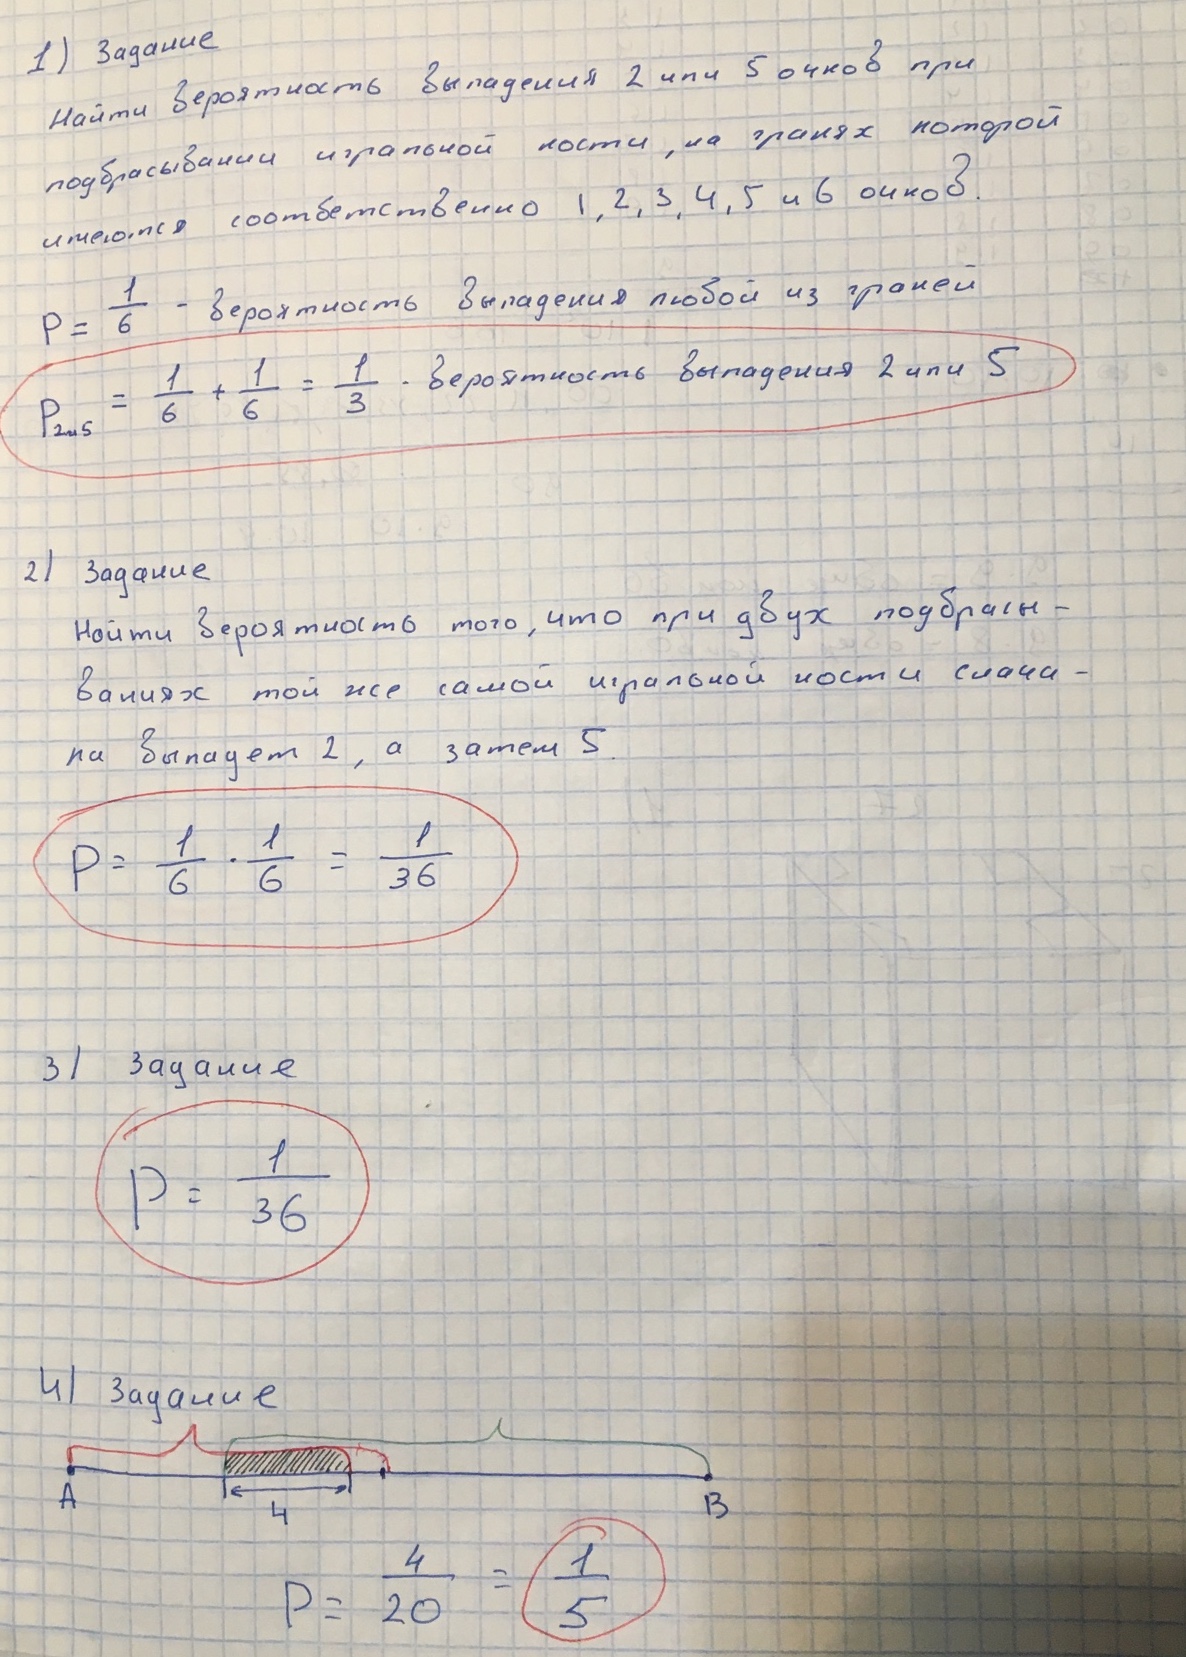 1) Задание
Найти вероятность выпадения 2 или 5 очков при
подбрасывании игральной кости, на гранях которой
имеются соответственно 1, 2, 3, 4, 5 и 6 очков.
P = 1/6 - вероятность выпадения любой из граней
P2и5 = 1/6 + 1/6 = 1/3 - вероятность выпадения 2 или 5
2) Задание
Найти вероятность того, что при двух подбрасы-
ваниях той же самой игральной кости снача-
ла выпадет 2, а затем 5.
P = 1/6 · 1/6 = 1/36
3) Задание
P = 1/36
4) Задание
A 4 B
P = 4/20 = 1/5